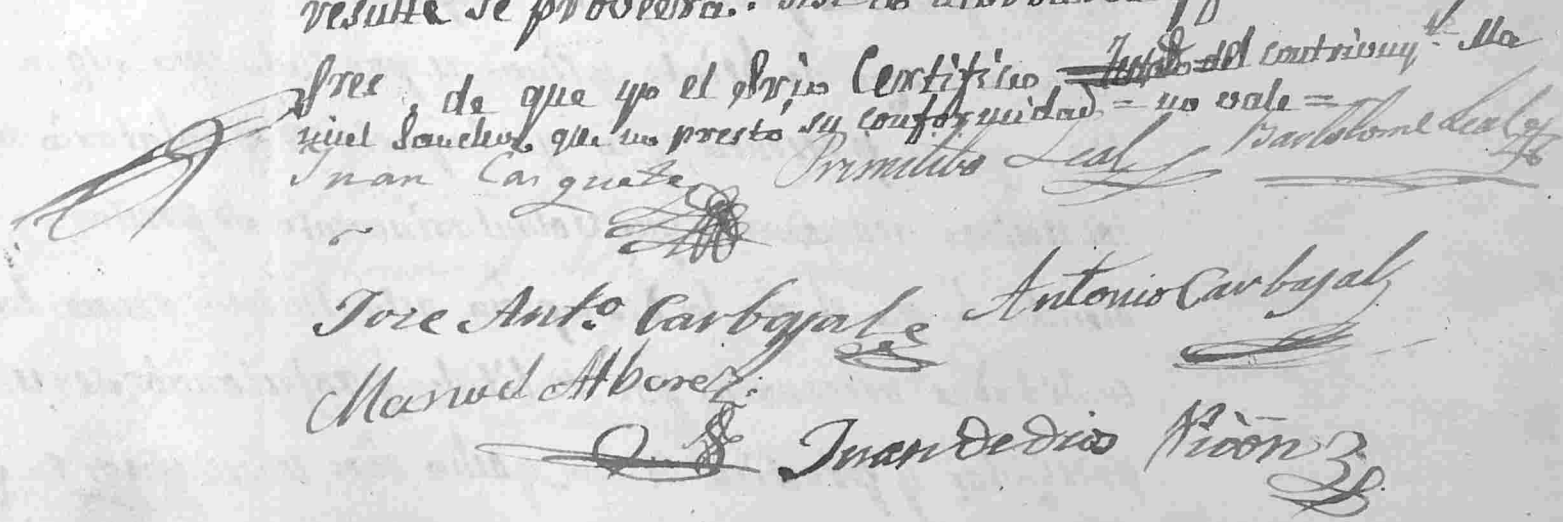 resulte se proveera.
Sres, de que yo el Srio Certifico del contrivuyte Ma
nuel Sanchez que no prestó su conformidad = no vale =
Juan Casquete Primitibo Leal Bartolome Leal
Jose Anto. Carbajal Antonio Carbajal
Manuel Alborez
Juan de dios